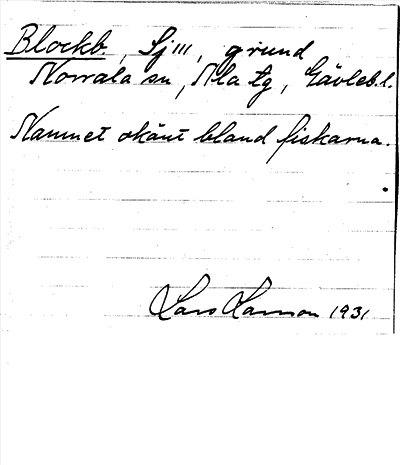 Blockb., Sj III, grund
Norrala sn, Nla tg, Gävleb.l.
Namnet okänt bland fiskarna.
Lars Larsson 1931